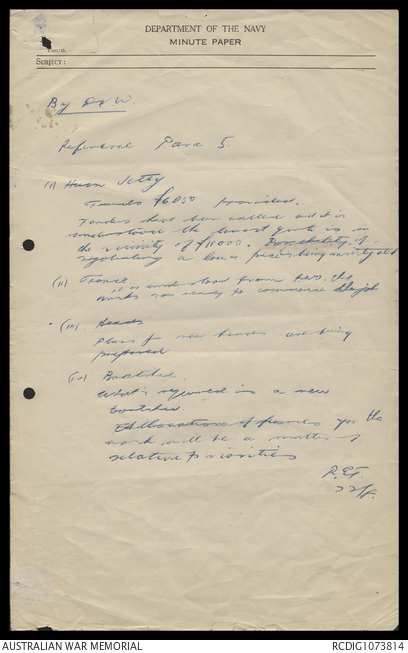 DEPARTMENT OF THE NAVY
MINUTE PAPER
SUBJECT:
By D of W.
Reference Para 5.
(i) Huon Jetty
Funds £6050 provided.
Tenders have been called and it is
understood the lowest quote is in
the vicinity of £11000. Possibility of
negotiating a lower price being investigated
(ii) Fence
it is understood from the
work now ready to commence
(iii) Heads
Plans for new heads are being
prepared
(iv) Boatshed
What is required is a new
boatshed
Allocation of funds for the
work will be a matter of
relative priorities
AUSTRALIAN WAR MEMORIAL
RCDIG1073814